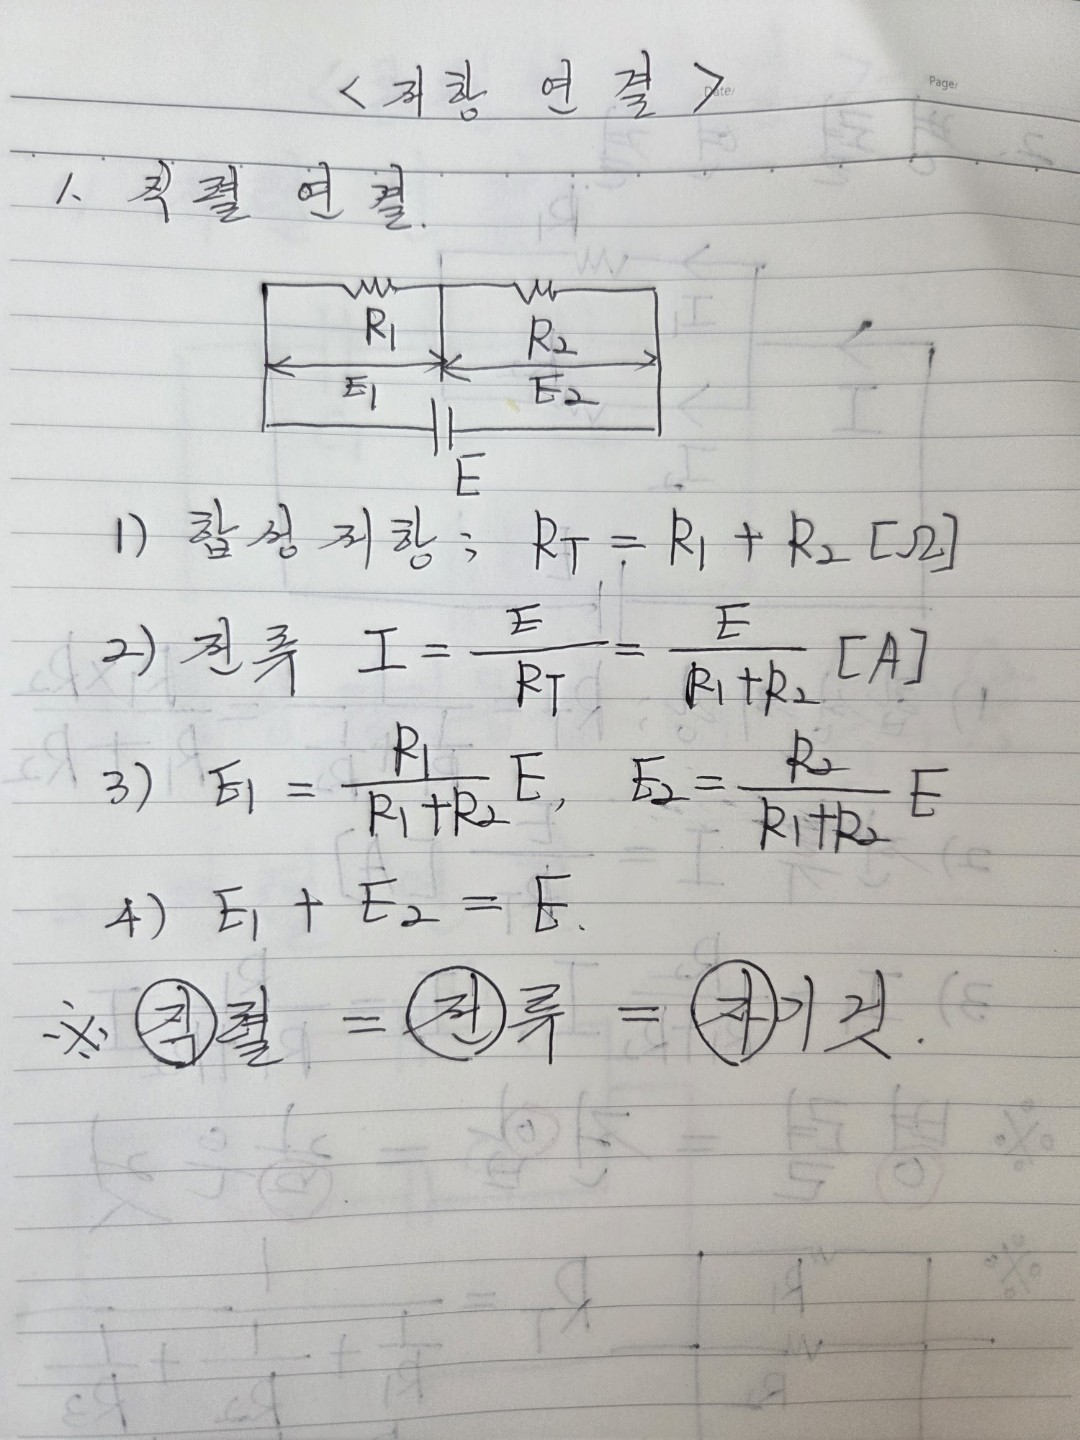 <저항 연결>
Date/
Page/
1. 직렬 연결.
R₁ R₂
E₁ E₂
E
1) 합성저항; R_T = R₁ + R₂ [Ω]
2) 전류 I = E/R_T = E/(R₁+R₂) [A]
3) E₁ = R₁/(R₁+R₂) E, E₂ = R₂/(R₁+R₂) E
4) E₁ + E₂ = E.
※ 직렬 = 전류 = 자기것.